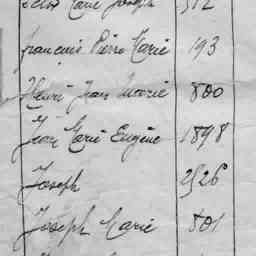 Marie Joseph 512
François Pierre Marie 193
Henri Jean Marie 800
Jean Marie Eugène 1898
Joseph 2526
Joseph Marie 801